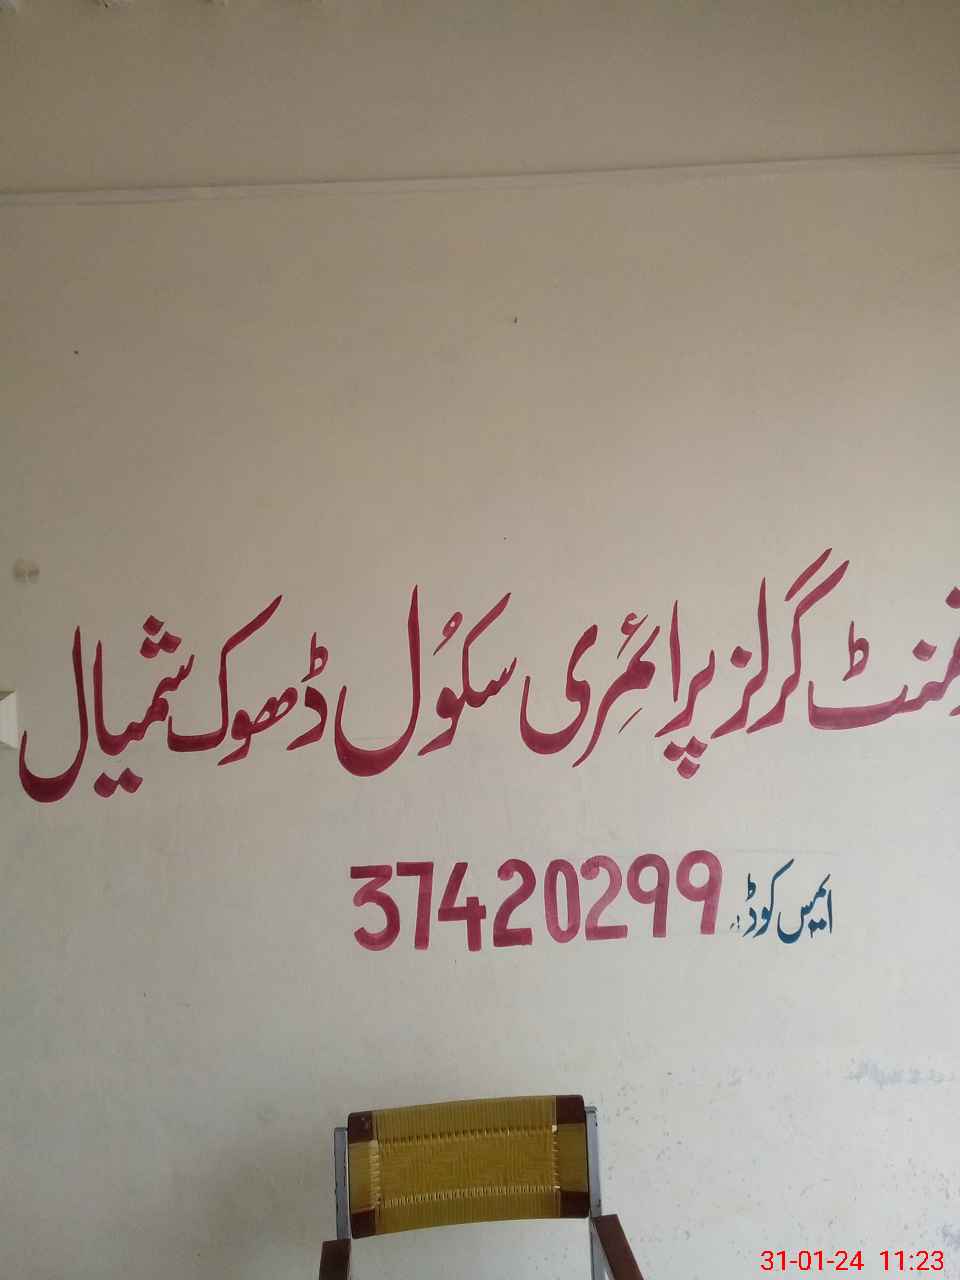 منٹ گرلز پرائمِری سکُول ڈھوک شمیال
ایمس کوڈ: 37420299
31-01-24 11:23